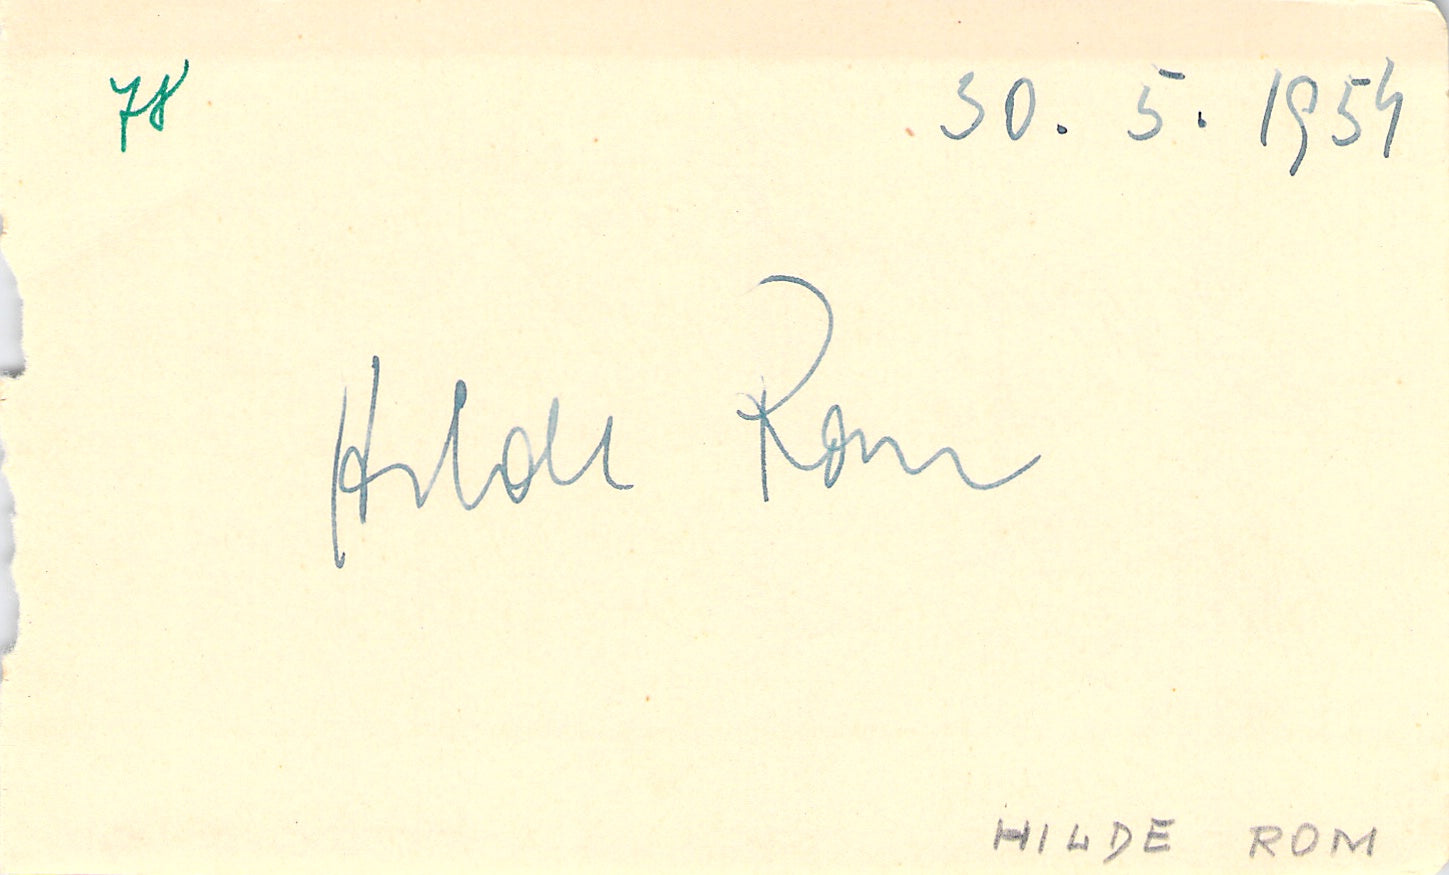 78
30. 5. 1954
Hilde Rom
HILDE ROM